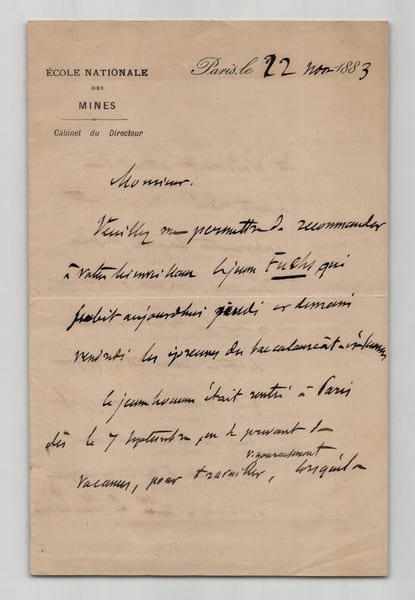 ÉCOLE NATIONALE
DES
MINES
Cabinet du Directeur
Paris, le 22 nov 1883
Monsieur.
Veuillez me permettre de recommander
à votre bienveillance le jeune Fuchs qui
subit aujourd'hui jeudi et demain
vendredi les épreuves du baccalauréat ès sciences
Ce jeune homme était rentré à Paris
dès le 7 septembre, en se privant de
vacances, pour travailler vigoureusement, lorsqu'il a